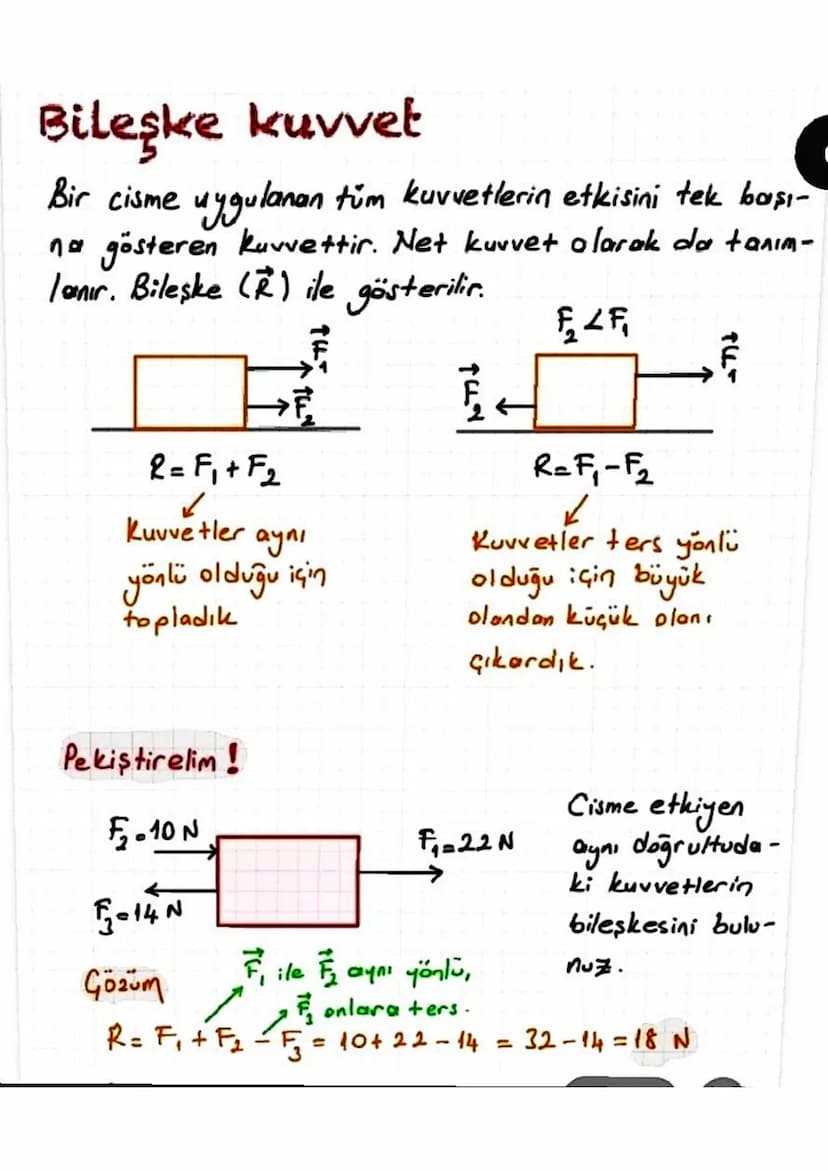 Bileşke kuvvet
Bir cisme uygulanan tüm kuvvetlerin etkisini tek başı-
na gösteren kuvvettir. Net kuvvet olarak da tanım-
lanır. Bileşke (R⃗) ile gösterilir.
F₂ < F₁
F⃗₁
F⃗₂
F⃗₂
F⃗₁
R = F₁ + F₂
R = F₁ - F₂
Kuvvetler aynı
yönlü olduğu için
topladık
Kuvvetler ters yönlü
olduğu için büyük
olandan küçük olanı
çıkardık.
Pekiştirelim !
F₂ = 10 N
F₁ = 22 N
F₃ = 14 N
Cisme etkiyen
aynı doğrultuda-
ki kuvvetlerin
bileşkesini bulu-
nuz.
Çözüm
F⃗₁ ile F⃗₂ aynı yönlü,
F⃗₃ onlara ters.
R = F₁ + F₂ - F₃ = 10 + 22 - 14 = 32 - 14 = 18 N